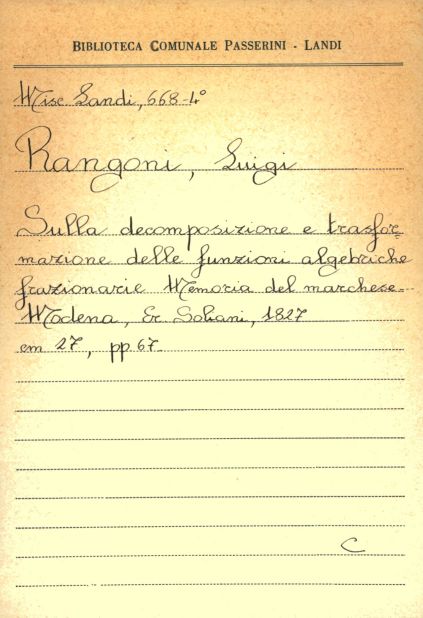 BIBLIOTECA COMUNALE PASSERINI - LANDI
Misc. Landi, 668-4°
Rangoni, Luigi
Sulla decomposizione e trasfor-
mazione delle funzioni algebriche
frazionarie Memoria del marchese -
Modena, Er. Soliani, 1827
cm 27, pp. 67.
C